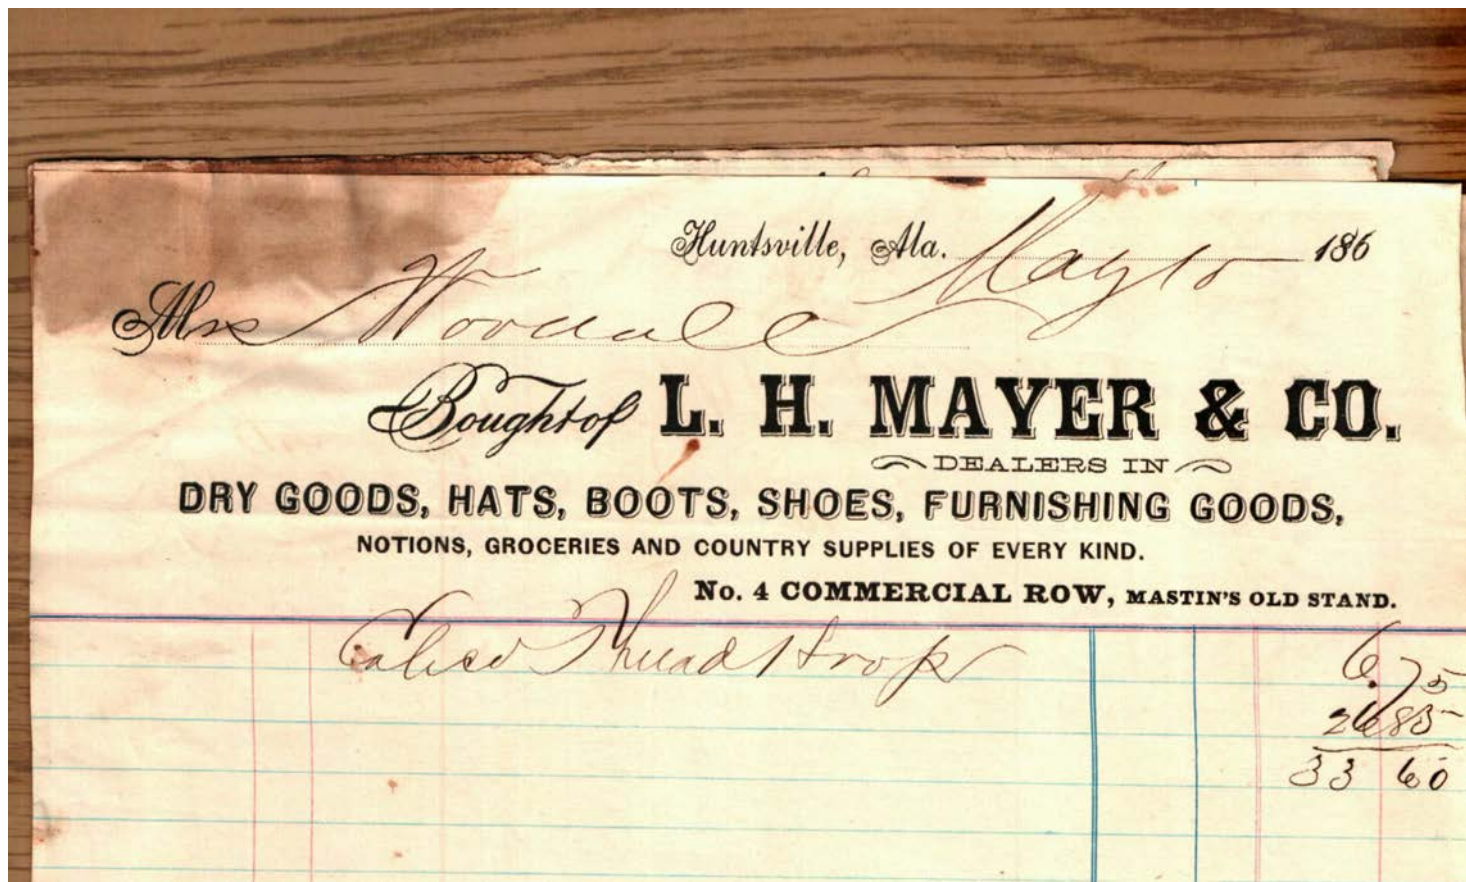 Huntsville, Ala. May 10 186
Mrs Woodall
Bought of L. H. MAYER & CO.
DEALERS IN
DRY GOODS, HATS, BOOTS, SHOES, FURNISHING GOODS,
NOTIONS, GROCERIES AND COUNTRY SUPPLIES OF EVERY KIND.
No. 4 COMMERCIAL ROW, MASTIN'S OLD STAND.
Calico Thread 6.75
26 85
33 60